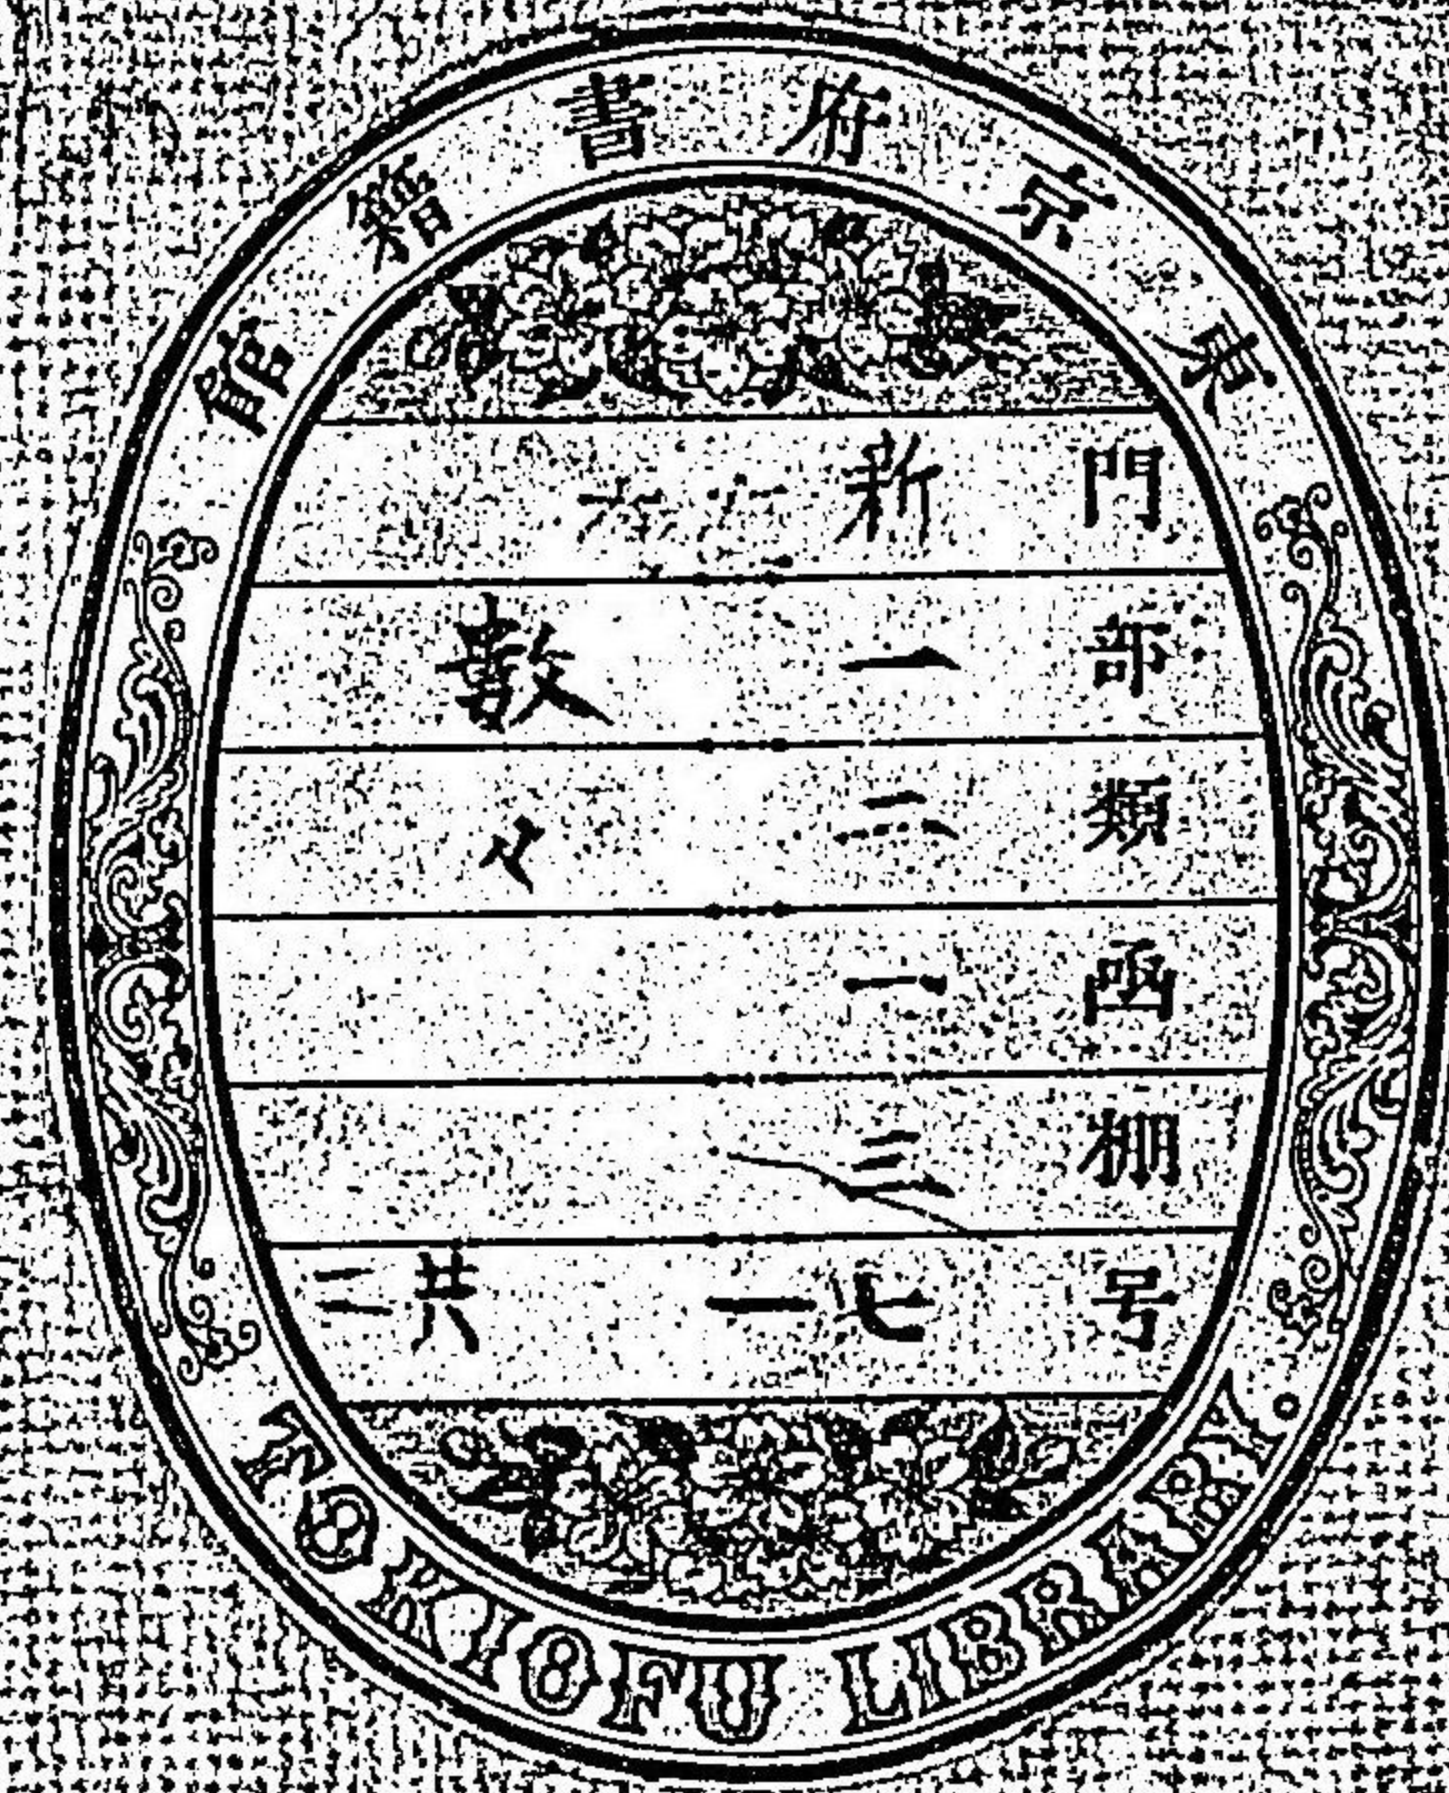 東京府書籍館
門 新
部 一 數
類 二
函 一
棚 三
号 七一 共二
TOKIOFU LIBRARY.